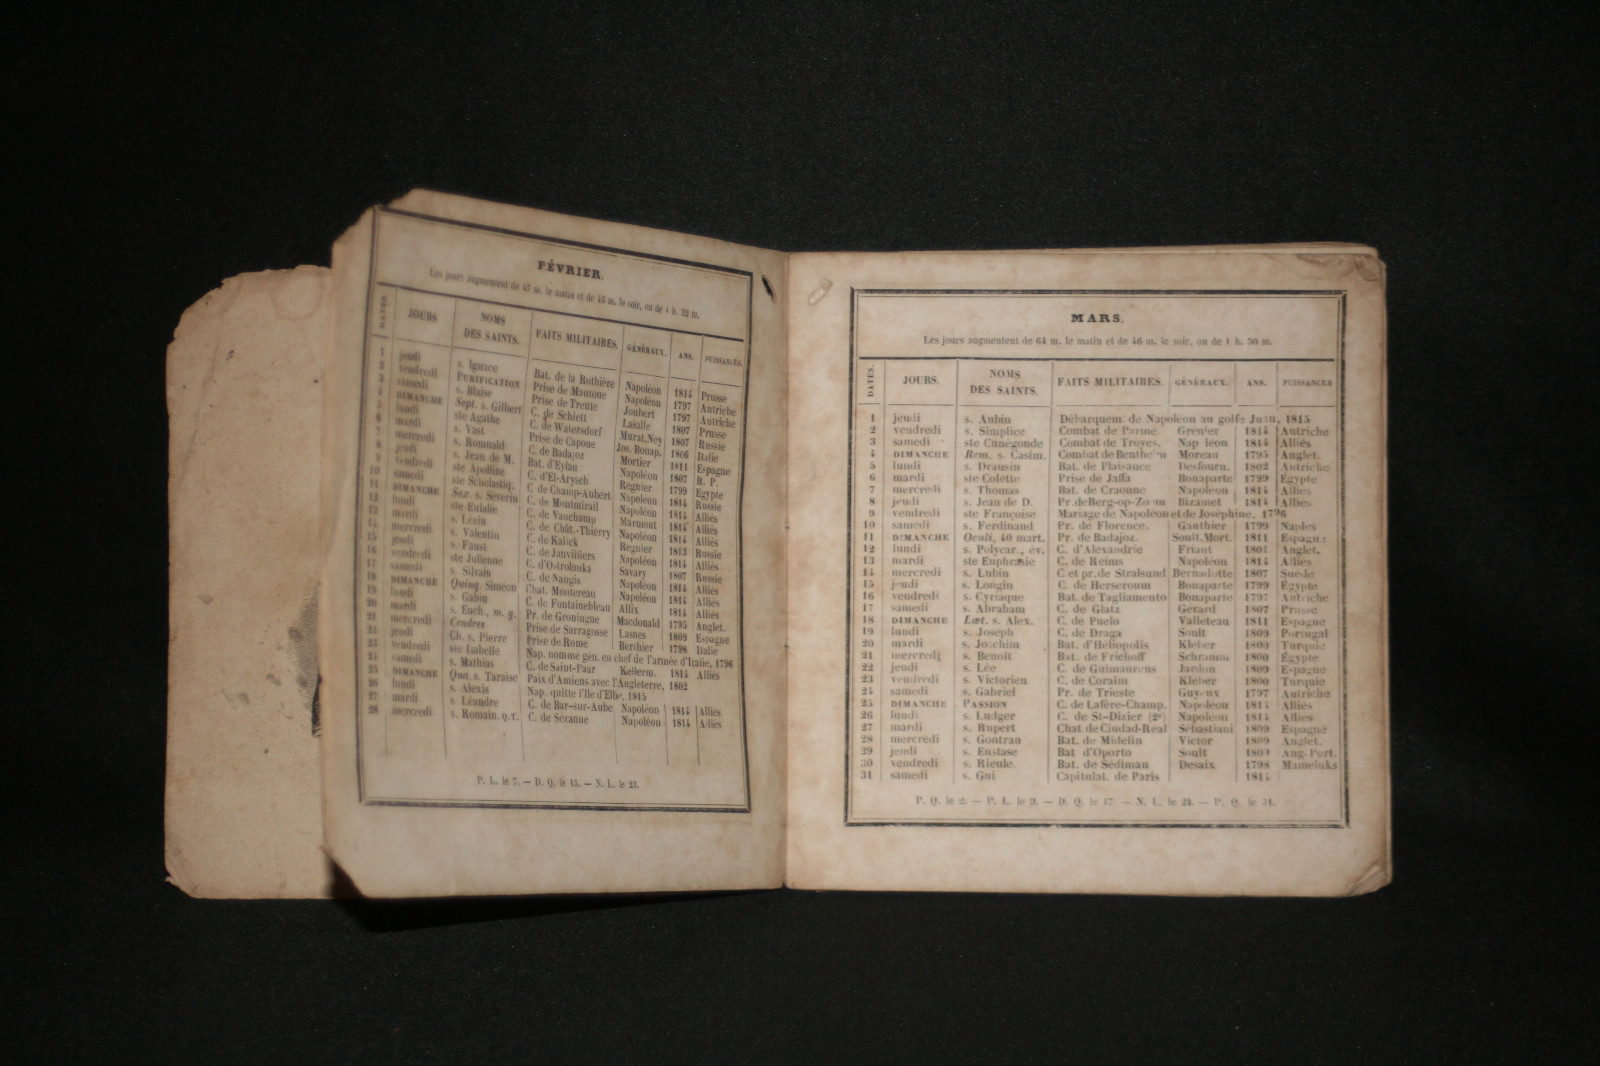 FÉVRIER.
Les jours augmentent de 47 m. le matin et de 45 m. le soir, ou de 1 h. 32 m.
DATES JOURS NOMS DES SAINTS. FAITS MILITAIRES. GÉNÉRAUX. ANS. PUISSANCES.
1 jeudi s. Ignace Bat. de la Rothière Napoléon 1814 Prusse
2 vendredi PURIFICATION Prise de Mantoue Napoléon 1797 Autriche
3 samedi s. Blaise Prise de Trente Joubert 1797 Autriche
4 DIMANCHE Sept. s. Gilbert C. de Schlett Lasalle 1807 Prusse
5 lundi ste Agathe C. de Watersdorf Murat, Ney 1807 Russie
6 mardi s. Vast Prise de Capoue Jos. Bonap. 1806 Italie
7 mercredi s. Romuald C. de Badajoz Mortier 1811 Espagne
8 jeudi s. Jean de M. Bat. d'Eylau Napoléon 1807 R. P.
9 vendredi ste Apolline C. d'El-Arysch Regnier 1799 Egypte
10 samedi ste Scholastiq. C. de Champ-Aubert Napoléon 1814 Russie
11 DIMANCHE Sex. s. Séverin C. de Montmirail Napoléon 1814 Alliés
12 lundi ste Eulalie C. de Vauchamp Marmont 1814 Alliés
13 mardi s. Lézin C. de Chât.-Thierry Napoléon 1814 Alliés
14 mercredi s. Valentin C. de Kalick Regnier 1813 Russie
15 jeudi s. Faust C. de Janvilliers Napoléon 1814 Alliés
16 vendredi ste Julienne C. d'Ostrolonka Savary 1807 Russie
17 samedi s. Silvain C. de Nangis Napoléon 1814 Alliés
18 DIMANCHE Quinq. Siméon Chat. Montereau Napoléon 1814 Alliés
19 lundi s. Gabin C. de Fontainebleau Allix 1814 Alliés
20 mardi s. Euch., m. g. Pr. de Groningue Macdonald 1795 Anglet.
21 mercredi Cendres Prise de Sarragosse Lasnes 1809 Espagne
22 jeudi Ch. s. Pierre Prise de Rome Berthier 1798 Italie
23 vendredi ste Isabelle Nap. nommé gén. en chef de l'armée d'Italie, 1796
24 samedi s. Mathias C. de Saint-Paar Kellerm. 1814 Alliés
25 DIMANCHE Qua. s. Taraise Paix d'Amiens avec l'Angleterre, 1802
26 lundi s. Alexis Nap. quitte l'Ile d'Elbe, 1815
27 mardi s. Léandre C. de Bar-sur-Aube Napoléon 1814 Alliés
28 mercredi s. Romain. Q.T. C. de Sézanne Napoléon 1814 Alliés
P. L. le 7. — D. Q. le 15. — N. L. le 23.
MARS.
Les jours augmentent de 64 m. le matin et de 46 m. le soir, ou de 1 h. 50 m.
DATES. JOURS. NOMS DES SAINTS. FAITS MILITAIRES. GÉNÉRAUX. ANS. PUISSANCES
1 jeudi s. Aubin Débarquem. de Napoléon au golfe Juan, 1815
2 vendredi s. Simplice Combat de Parme. Grenier 1814 Autriche
3 samedi ste Cunégonde Combat de Troyes. Napoléon 1814 Alliés
4 DIMANCHE Rem. s. Casim. Combat de Bentheim Moreau 1795 Anglet.
5 lundi s. Drausin Bat. de Plaisance Desfourn. 1802 Autriche
6 mardi ste Colette Prise de Jaffa Bonaparte 1799 Égypte
7 mercredi s. Thomas Bat. de Craonne Napoléon 1814 Alliés
8 jeudi s. Jean de D. Pr. de Berg-op-Zoom Bizamet 1814 Alliés
9 vendredi ste Françoise Mariage de Napoléon et de Joséphine, 1796
10 samedi s. Ferdinand Pr. de Florence. Gauthier 1799 Naples
11 DIMANCHE Oculi, 40 mart. Pr. de Badajoz. Soult, Mort. 1811 Espagne
12 lundi s. Polycar., év. C. d'Alexandrie Friant 1801 Anglet.
13 mardi ste Euphrasie C. de Reims Napoléon 1814 Alliés
14 mercredi s. Lubin C. et pr. de Stralsund Bernadotte 1807 Suède
15 jeudi s. Longin C. de Herseroum Bonaparte 1799 Égypte
16 vendredi s. Cyriaque Bat. de Tagliamento Bonaparte 1797 Autriche
17 samedi s. Abraham C. de Glatz Gérard 1807 Prusse
18 DIMANCHE Læt. s. Alex. C. de Puelo Valleteau 1811 Espagne
19 lundi s. Joseph C. de Draga Soult 1809 Portugal
20 mardi s. Joachim Bat. d'Héliopolis Kléber 1800 Turquie
21 mercredi s. Benoît Bat. de Frichoff Schramm 1800 Égypte
22 jeudi s. Lée C. de Guimaraens Jardon 1809 Espagne
23 vendredi s. Victorien C. de Coraïm Kléber 1800 Turquie
24 samedi s. Gabriel Pr. de Trieste Guyeux 1797 Autriche
25 DIMANCHE PASSION C. de Lafère-Champ. Napoléon 1814 Alliés
26 lundi s. Ludger C. de St-Dizier (2e) Napoléon 1814 Alliés
27 mardi s. Rupert Chat de Ciudad-Real Sébastiani 1809 Espagne
28 mercredi s. Gontran Bat. de Midelin Victor 1809 Anglet.
29 jeudi s. Eustase Bat d'Oporto Soult 1809 Ang. Port.
30 vendredi s. Rieule. Bat. de Sédiman Desaix 1798 Mameluks
31 samedi s. Gui Capitulat. de Paris 1814
P. Q. le 2. — P. L. le 9. — D. Q. le 17. — N. L. le 24. — P. Q. le 31.